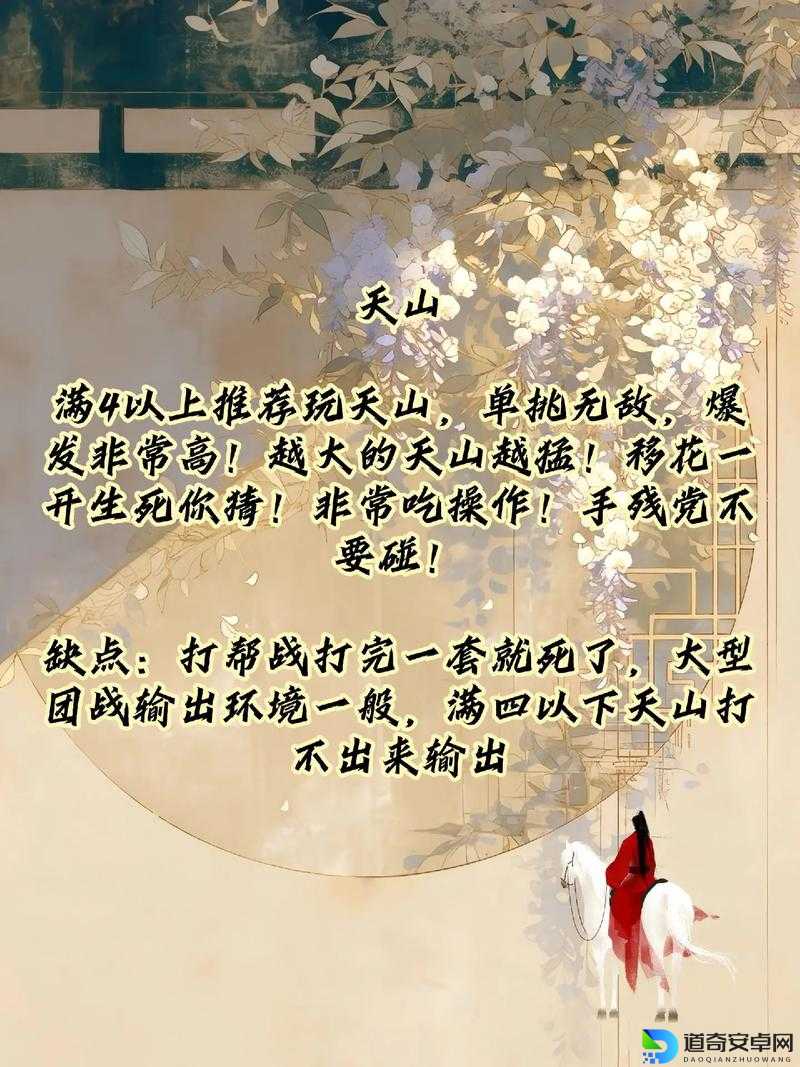 天山
满4以上推荐玩天山，单挑无敌，爆
发非常高！越大的天山越猛！移花一
开生死你猜！非常吃操作！手残党不
要碰！
缺点：打帮战打完一套就死了，大型
团战输出环境一般，满四以下天山打
不出来输出
道奇安卓网
DAOQIANZHUOWANG